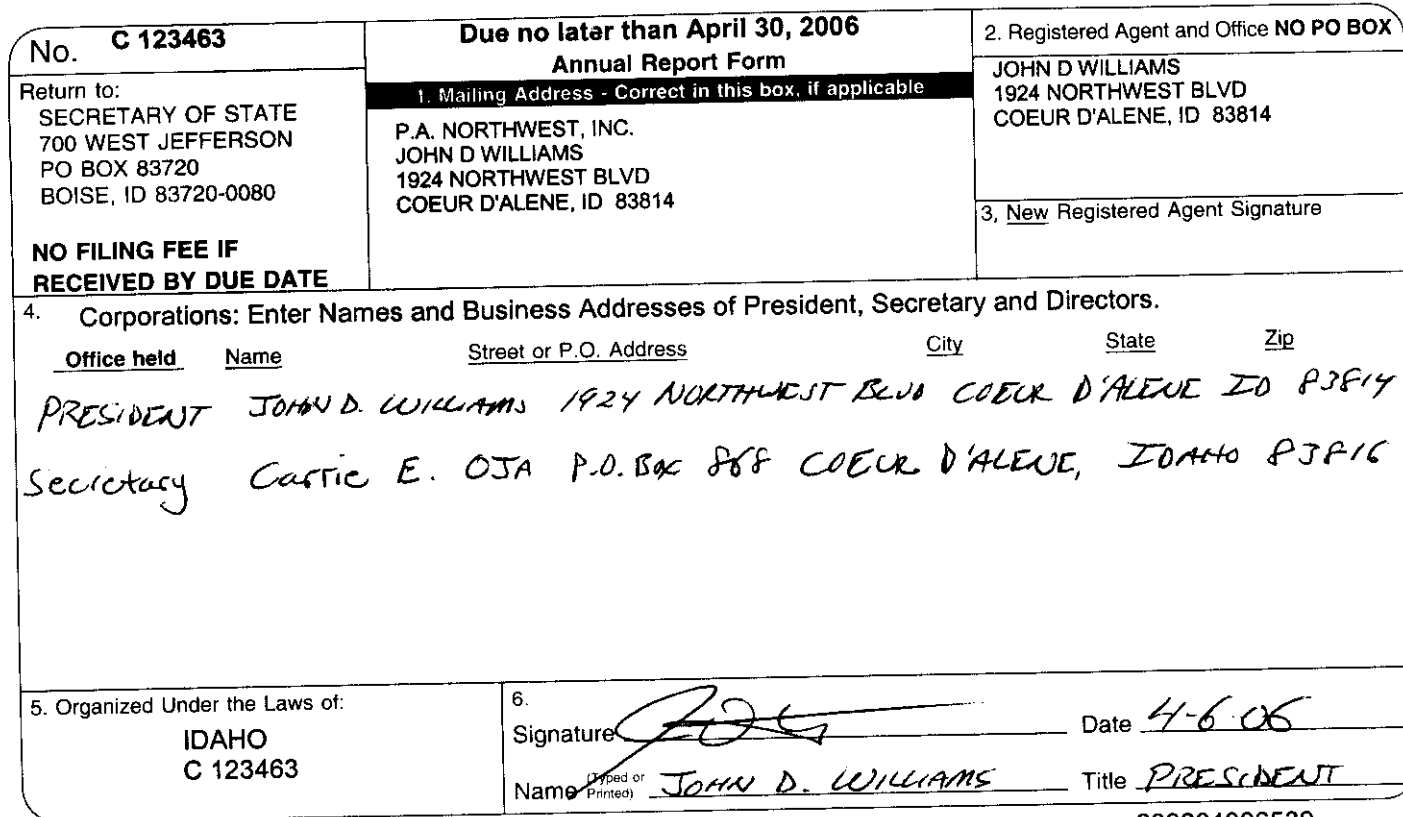 No. C 123463
Return to:
SECRETARY OF STATE
700 WEST JEFFERSON
PO BOX 83720
BOISE, ID 83720-0080
NO FILING FEE IF
RECEIVED BY DUE DATE
Due no later than April 30, 2006
Annual Report Form
1. Mailing Address - Correct in this box, if applicable
P.A. NORTHWEST, INC.
JOHN D WILLIAMS
1924 NORTHWEST BLVD
COEUR D'ALENE, ID 83814
2. Registered Agent and Office NO PO BOX
JOHN D WILLIAMS
1924 NORTHWEST BLVD
COEUR D'ALENE, ID 83814
3, New Registered Agent Signature
4. Corporations: Enter Names and Business Addresses of President, Secretary and Directors.
Office held Name Street or P.O. Address City State Zip
PRESIDENT JOHN D. WILLIAMS 1924 NORTHWEST BLVD COEUR D'ALENE ID 83814
Secretary Carrie E. OJA P.O. Box 868 COEUR D'ALENE, IDAHO 83816
5. Organized Under the Laws of:
IDAHO
C 123463
6.
Signature Date 4-6-06
Name (Typed or Printed) JOHN D. WILLIAMS Title PRESIDENT